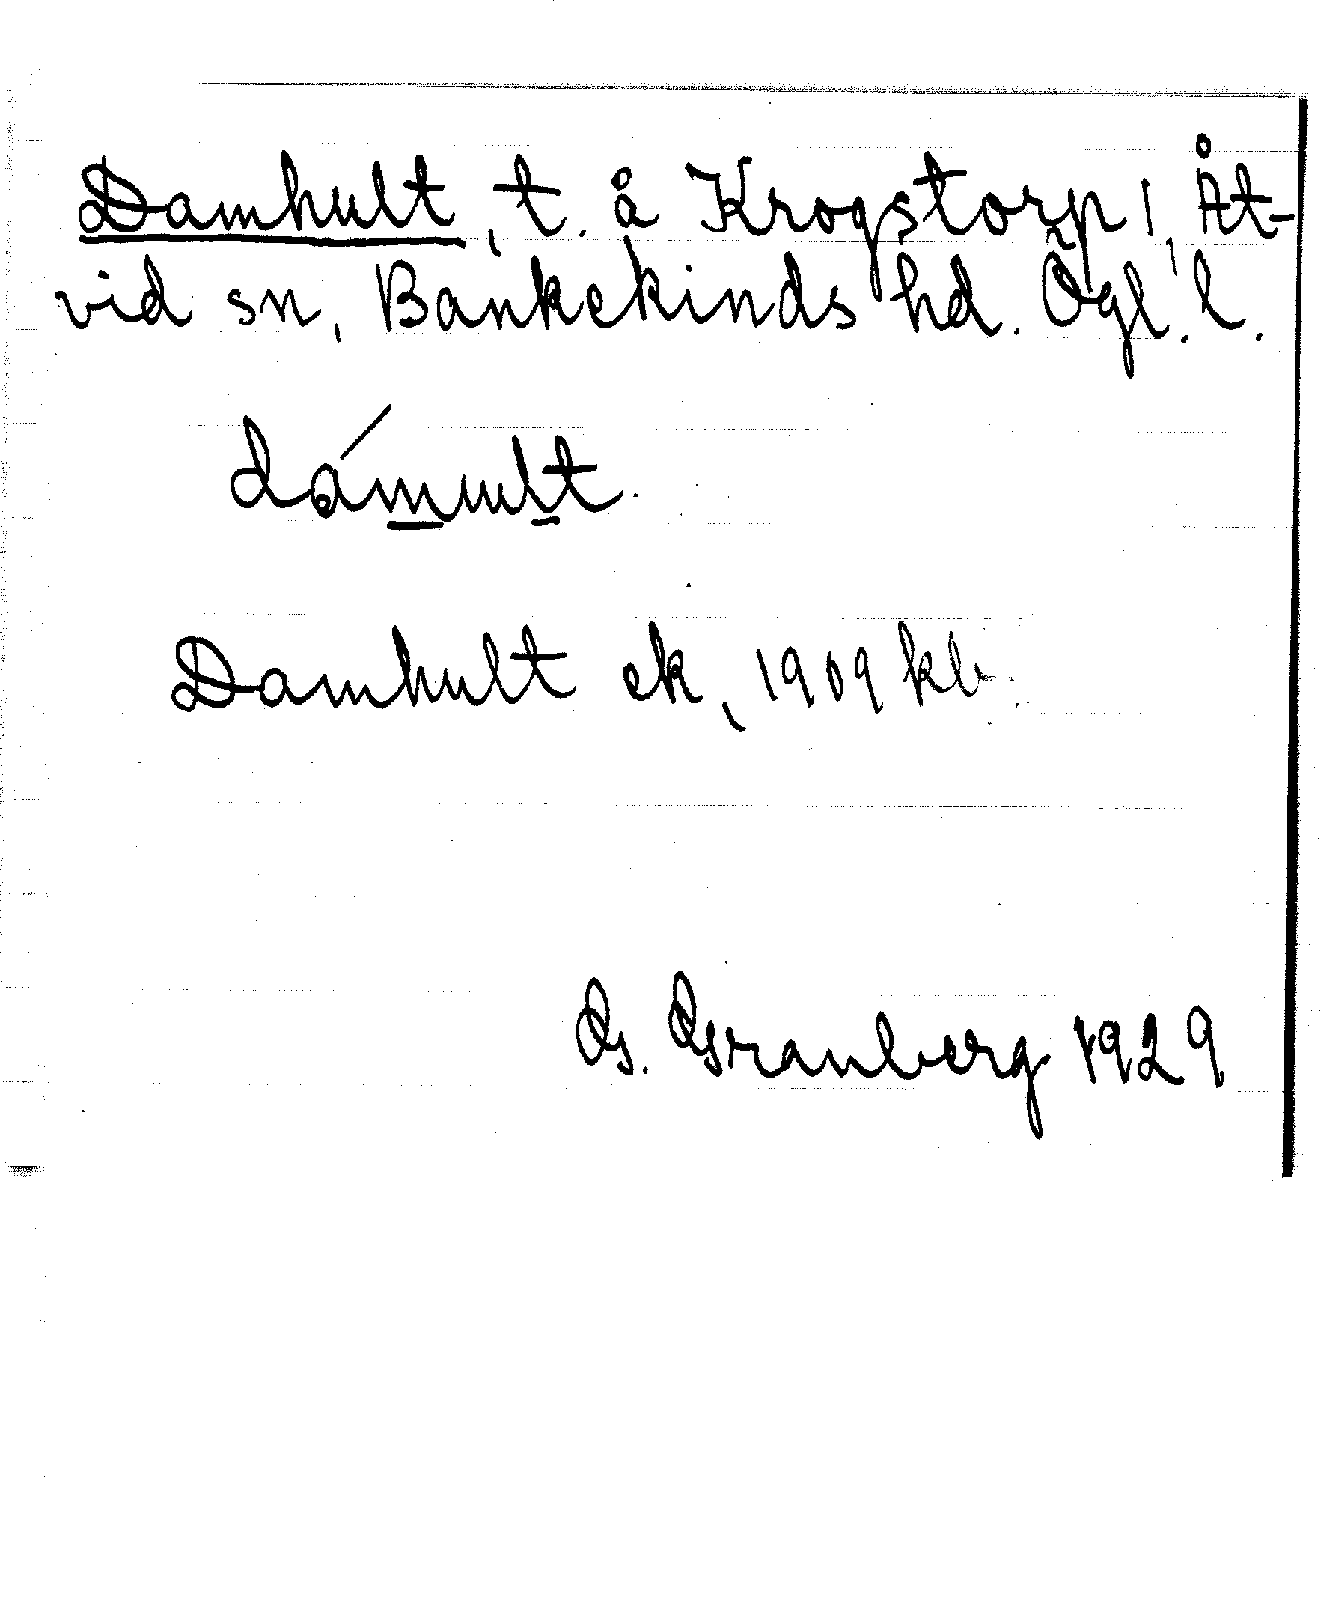 Damhult, t. å Krogstorp!, Åt-
vid sn, Bankekinds hd. Ögl. l.
Damhult ek, 1909 kb.
G. Granberg 1929